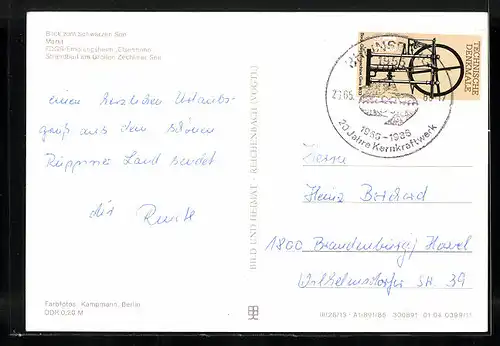 Blick zum Schwarzen See
Markt
FDGB-Erholungsheim „Ernst
Strandbad am Großen Zechliner See
einen herzlichen Urlaubs-
gruß aus dem schönen
Ruppiner Land sendet
dir
Farbfotos: Kampmann, Berlin
DDR 0,20 M
BILD UND HEIMAT · REICHENBACH (VOGTL)
TECHNISCHE
DENKMALE
RHEINSBERG
1955
1966-1986
20 Jahre Kernkraftwerk
Herrn
Heinz Borchard
1800 Brandenburg/Havel
Wilhelmsdorfer Str. 39
III/26/13 A1/891/86 300891 01 04 0399/11